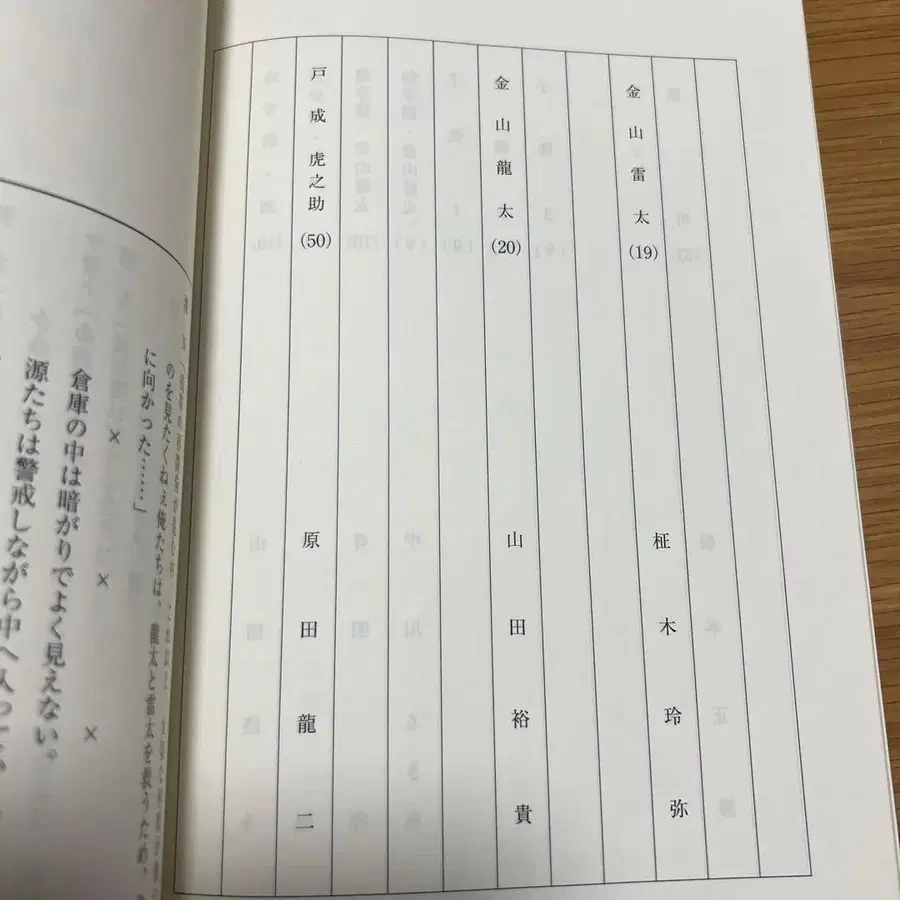 金山雷太(19) 柾木玲弥
金山龍太(20) 山田裕貴
戸成・虎之助(50) 原田龍二
のを見たくねぇ俺たちは。龍太と雷太を救うため、
に向かった……」
× × ×
倉庫の中は暗がりでよく見えない。
源たちは警戒しながら中へ入って